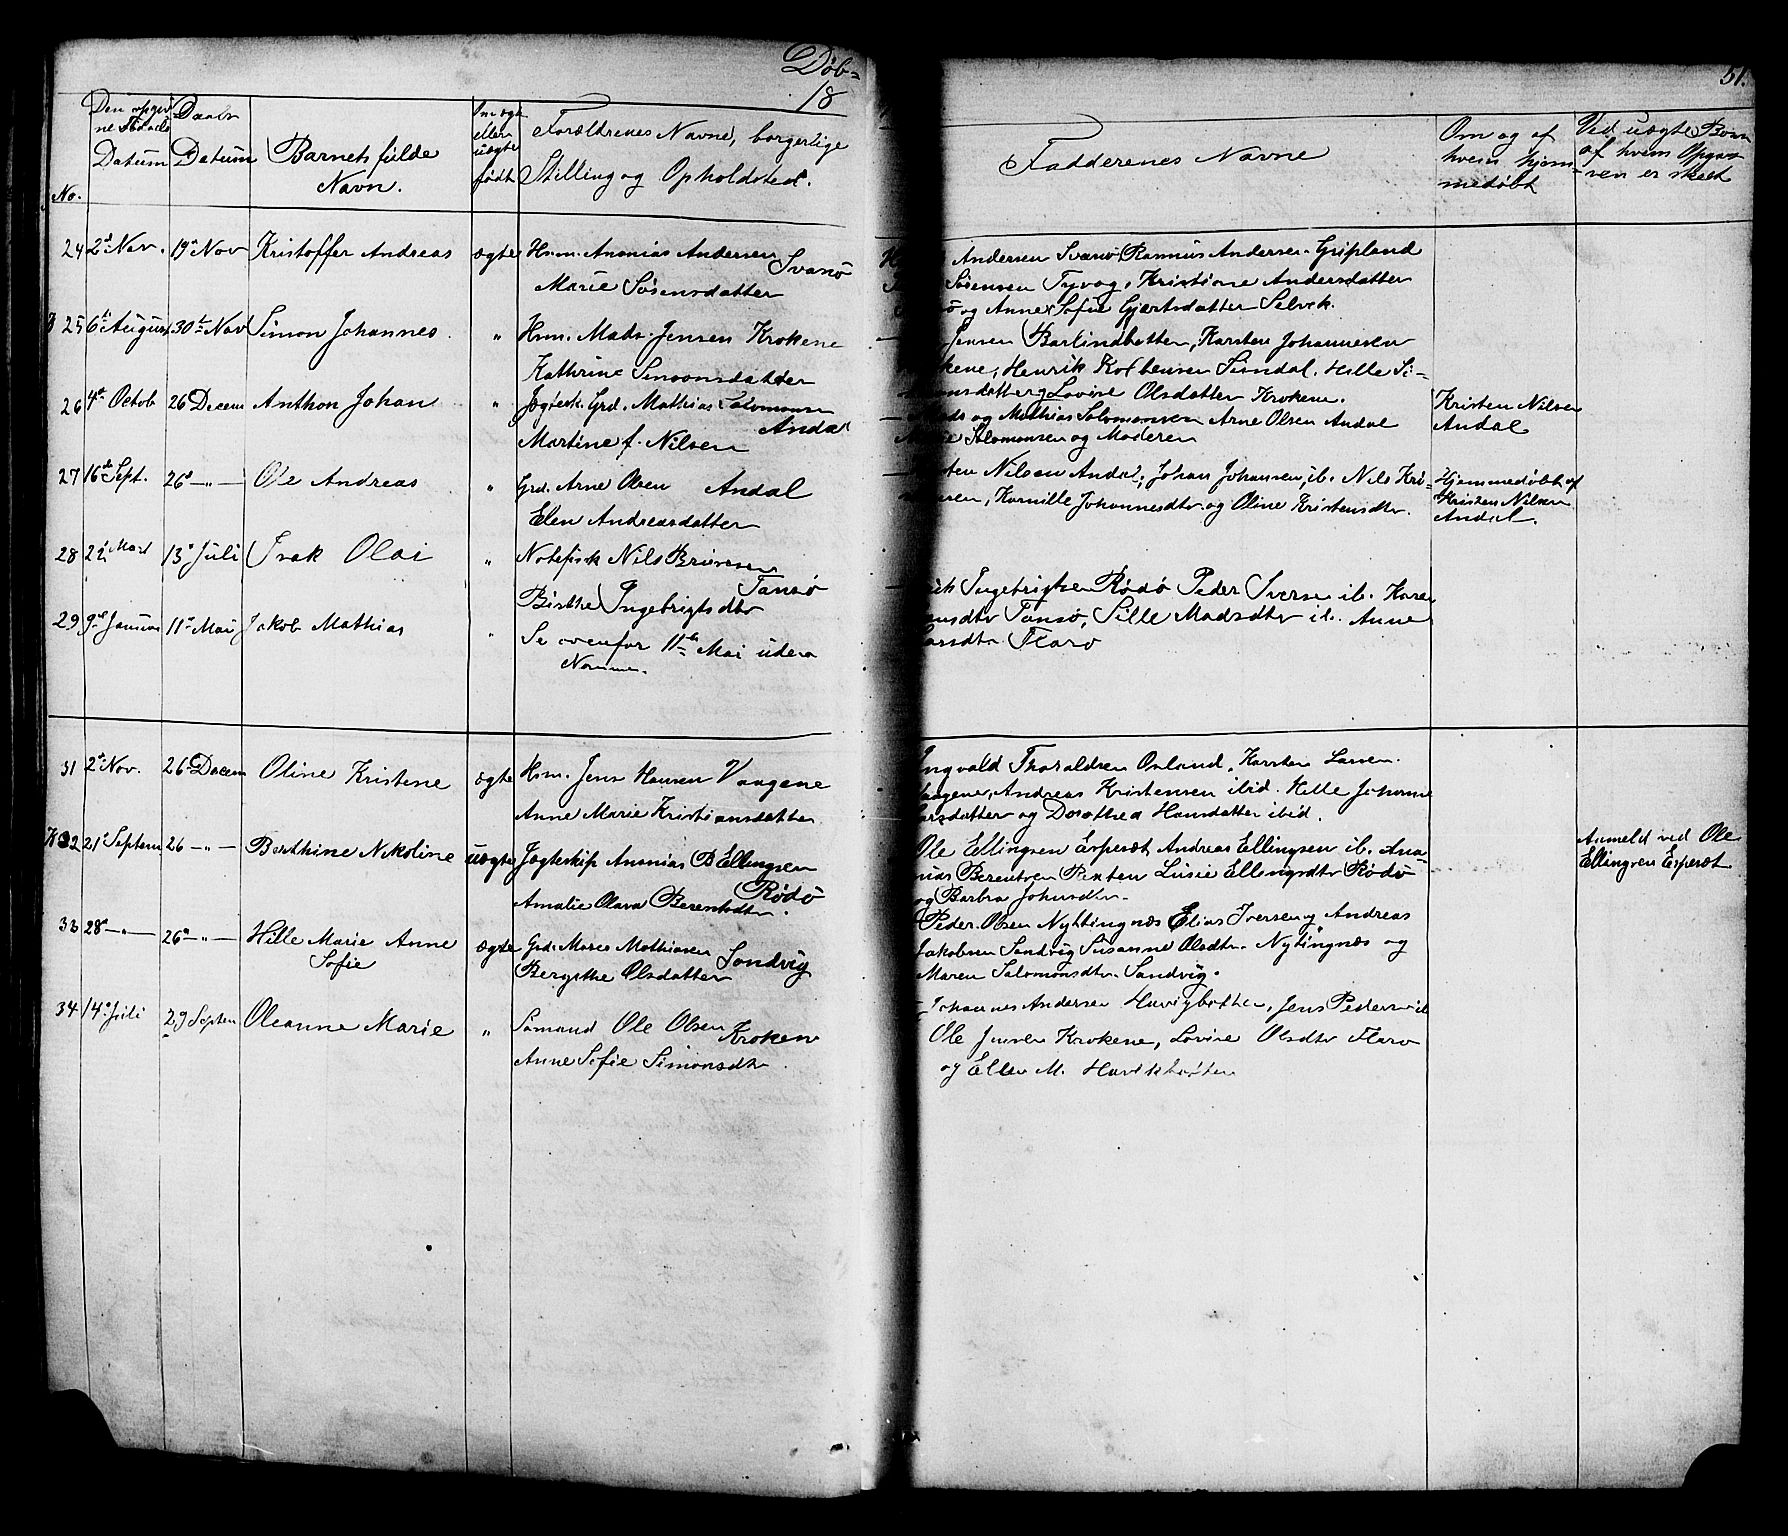 Døb-
18
51.
No.
Den opgiv
ne Fødsels
Datum
Daabs
Datum
Barnets fulde
Navn.
Om ægte
eller
uægte
født
Forældrenes Navne, borgerlige
Stilling og Opholdsted.
Fadderenes Navne
Om og af
hvem hjem-
medøbt
Ved uægte Børn
af hvem Opga-
ven er skeet
24 2d Nov. 19d Nov Kristoffer Andreas ægte Hsm. Ananias Andersen
Svanø
Marie Sørensdatter
Andersen Svanø Rasmus Andersen Gripland
Sørensen Tyvog, Kristine Andersdatter
og Anne Sofie Gjertsdatter Selvik.
25 6te August 30te Nov Simon Johannes. " Hsm. Mads Jensen Krokene
Kathrine Simonsdatter
Jensen Barlindbotten, Karsten Johannesen
kene, Henrik Kolbensen Sundal. Hille Si-
monsdatter og Lovise Olsdatter Krokene.
26 4de Octob 26 Decem Anthon Johan " Jægtesk. Grd. Mathias Salomonsen
Andal
Martine f. Nilsen
Mads og Mathias Salomonsen Arne Olsen Andal
Salomonsen og Moderen
Kristen Nilsen
Andal
27 16de Sept. 26d — " — Ole Andreas " Grd. Arne Olsen Andal
Elen Andreasdatter
sten Nilsen Andal, Johan Johansen, ib. Nils Kri-
sen, Kornille Johannesdtr. og Oline Kristensdtr.
Hjemmedøbt af
Kristen Nilsen
Andal.
28 22 Mart 13d Juli Isak Olai " Notefisk Nils Brüresen
Tansø
Birthe Ingebrigtsdtr
Ingebrigtsen Rødø Peder Iversen ib. Karen
nsdtr Tansø, Sille Madsdtr ib. Anne
Larsdtr. Florø
29 9de Januar 11te Mai Jakob Mathias " Se ovenfor 11te Mai uden
Nummer.
31 2d Nov. 26 Decem Oline Kristene ægte Hsm. Jens Hansen Vaagene
Anne Marie Kristiansdatter
Ingvald Tharaldsen Osland, Karsten Larsen
Vaagene, Andreas Kristensen ibid. Hille Johanne
Larsdatter og Dorothea Hansdatter ibid.
32 21d Septem 26 — " — Berthine Nikoline uægte Jægteskip Ananias B Ellingsen
Rødø
Amalie Olava Berentsdtr.
Ole Ellingsen Espesæt Andreas Ellingsen ib. Ana-
nias Berentsen Russen Lusie Ellingsdtr Rødø
og Barbra Johnsdtr.
Anmeld ved Ole
Ellingsen Espesæt
33 28d — " — 26d — " — Hille Marie Anne
Sofie
ægte Grd. Mons Mathiasen
Sandvig
Bergithe Olsdatter
Peder Olsen Nyttingnæs Elias Iversen og Andreas
Jakobsen Sandvig Susanne Olsdtr. Nytingnæs og
Maren Salomonsdtr. Sandvig.
34 14d Juli 29 Septem Oleanne Marie " Sømand Ole Olsen
Krokene
Anne Sofie Simonsdtr.
Johannes Andersen Havigbotten, Jens Pedersen ib
Ole Jensen Krokene, Lovise Olsdtr Florø
og Ellen M. Havikbotten